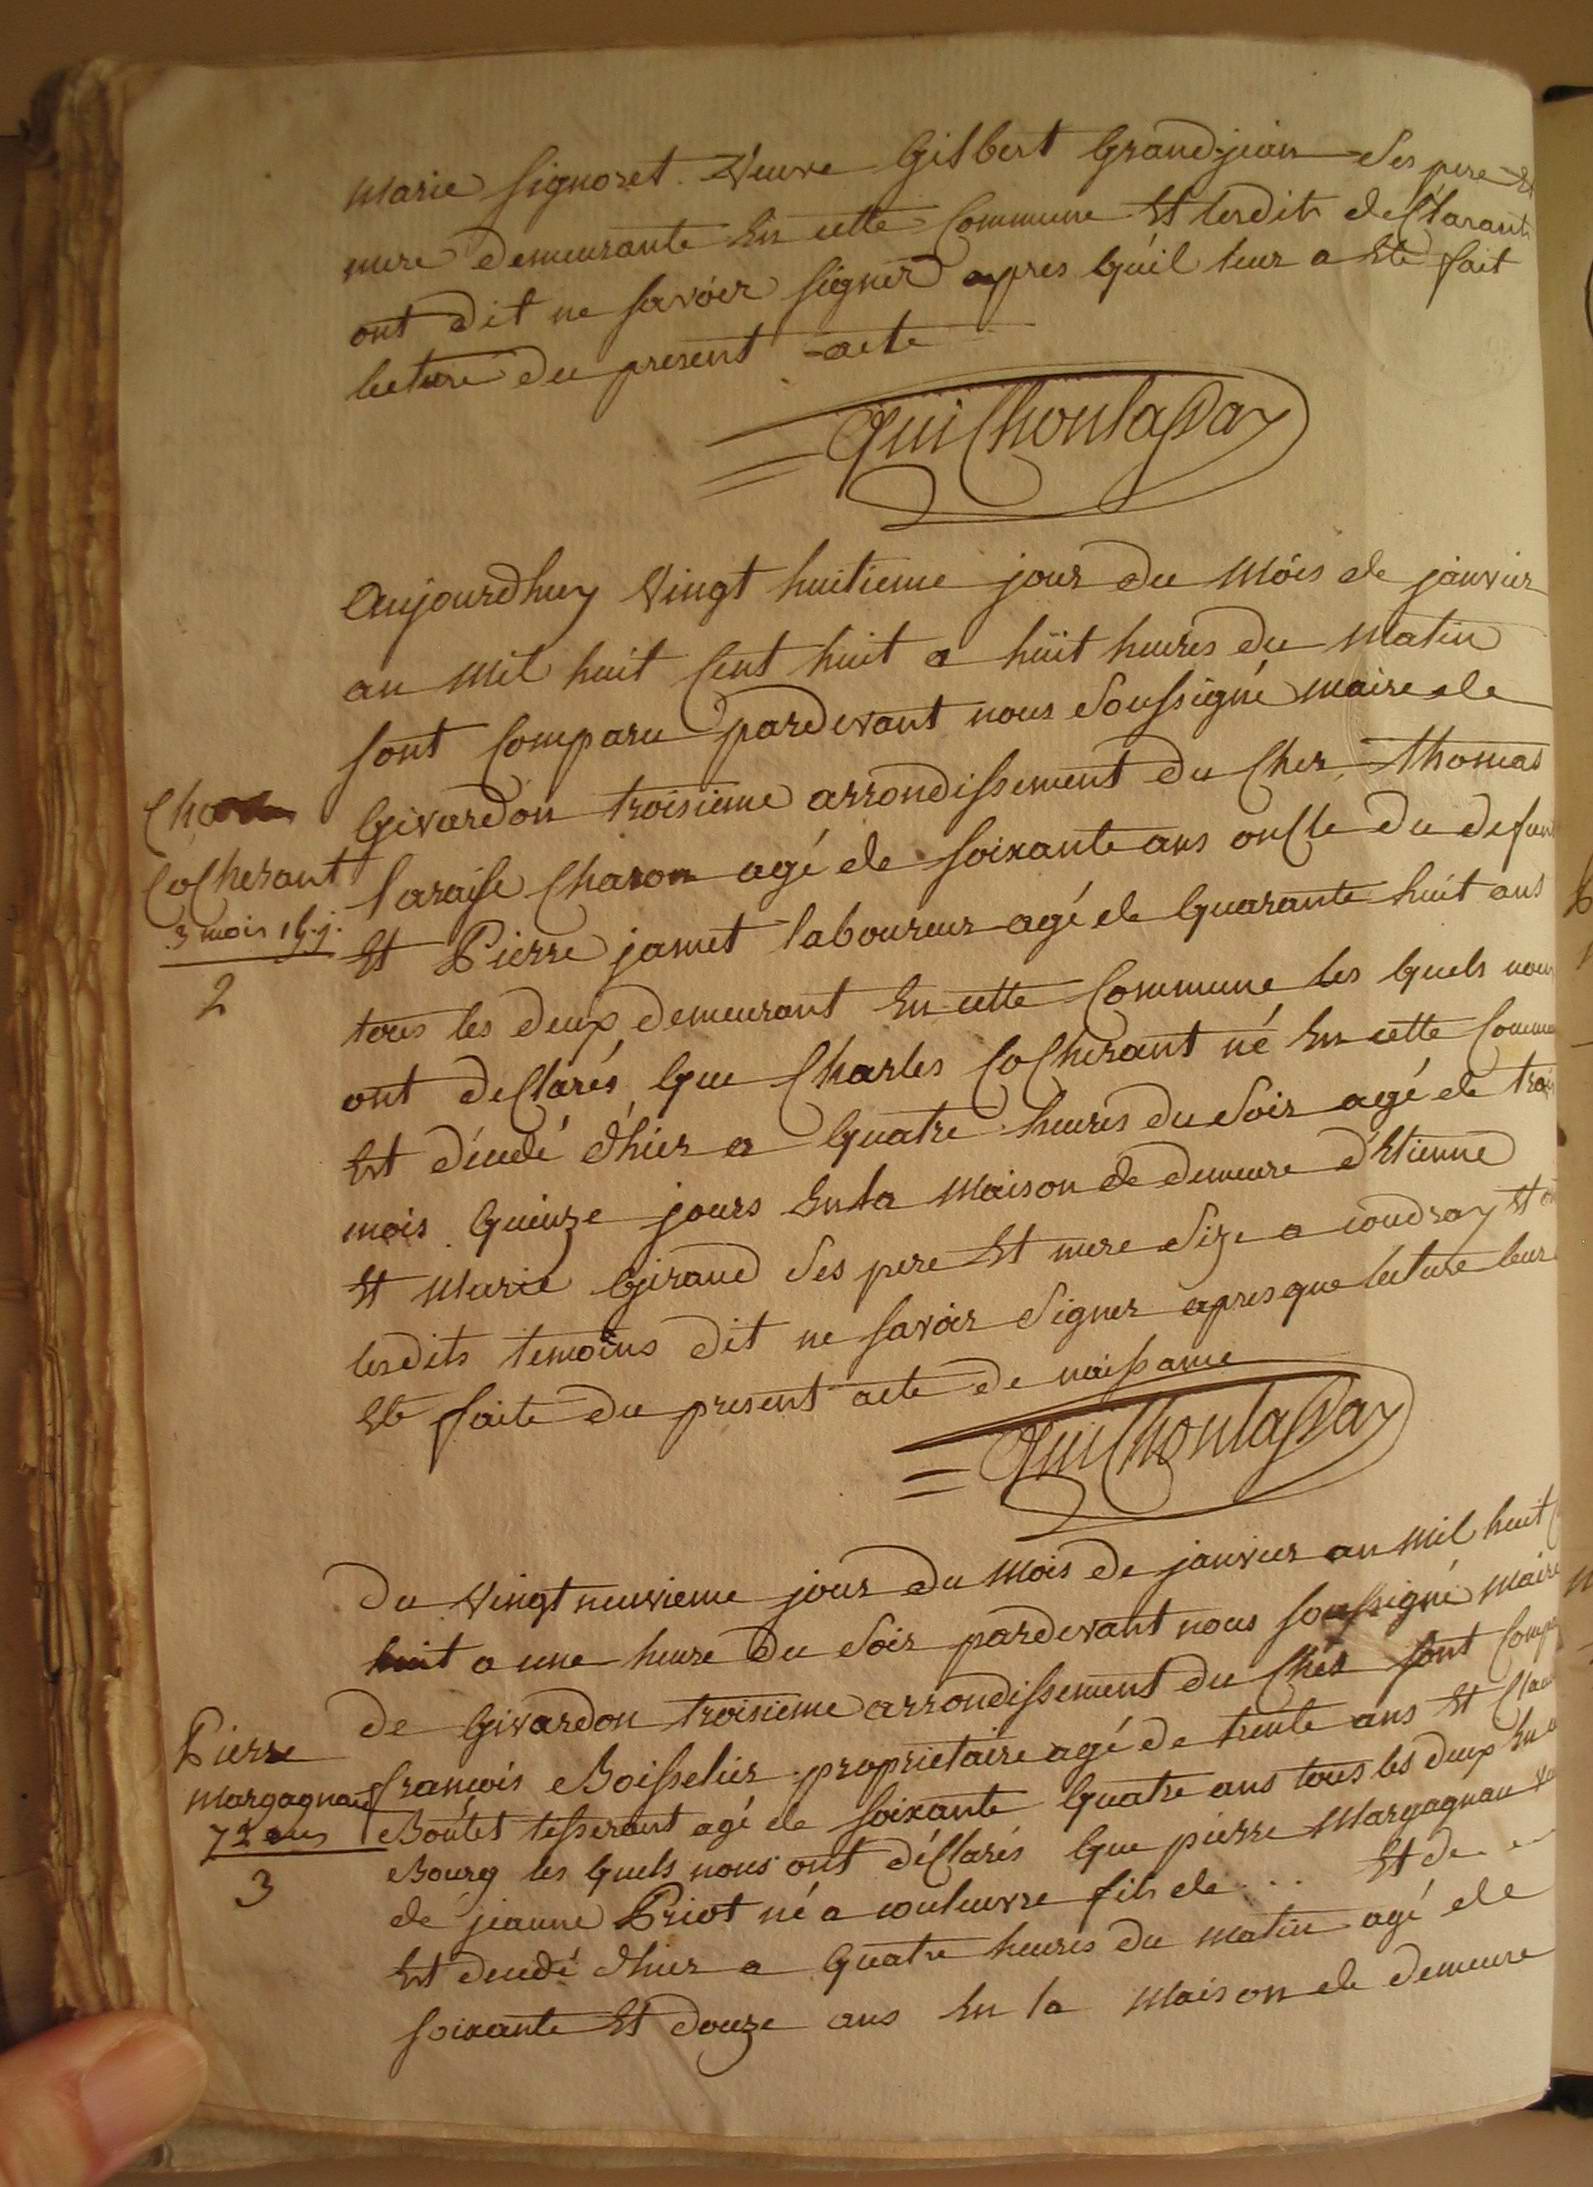 Marie Signoret Veuve Gilbert Grandjean Ses pere Et
mere demeurante En cette Commune Et lesdits declarants
ont dit ne savoir signer apres qu'il leur a Eté fait
lecture du present acte
Aujourdhuy Vingt huitieme jour du Mois de janvier
an Mil huit Cent huit a huit heures du Matin
sont Comparu pardevant nous Soussigné Maire de
Givardon troisieme arrondissement du Cher, Thomas
Charon agé de soixante ans oncle du defunt
Et Pierre jamet laboureur agé de quarante huit ans
tous les deux demeurant En cette Commune les quels nous
ont declarés que Charles Cocherant né En cette Commune
Est décedé d'hier a quatre heures du Soir agé de trois
mois quinze jours En la Maison de demeure d'Etienne
Et Marie Giraud Ses pere Et mere Size a coudray Et ont
lesdits temoins dit ne savoir Signer apres que lecture leur a
Eté faite du present acte de naissance
Cocherant
3 mois 15 j.
2
Du Vingt neuvieme jour du Mois de janvier an Mil huit
huit a une heure du Soir pardevant nous soussigné Maire
de Givardon troisieme arrondissement du Cher sont Comparu
francois Boisselier proprietaire agé de trente ans Et
Boutet tesserant agé de soixante quatre ans tous les deux En ce
Bourg les quels nous ont déclarés que pierre Margagnau
de jeanne Priot né a couleuvre fils de ... Et de ...
Est decedé d'hier a quatre heures du matin agé de
soixante Et douze ans En la Maison de demeure
Pierre
Margagnau
72 ans
3